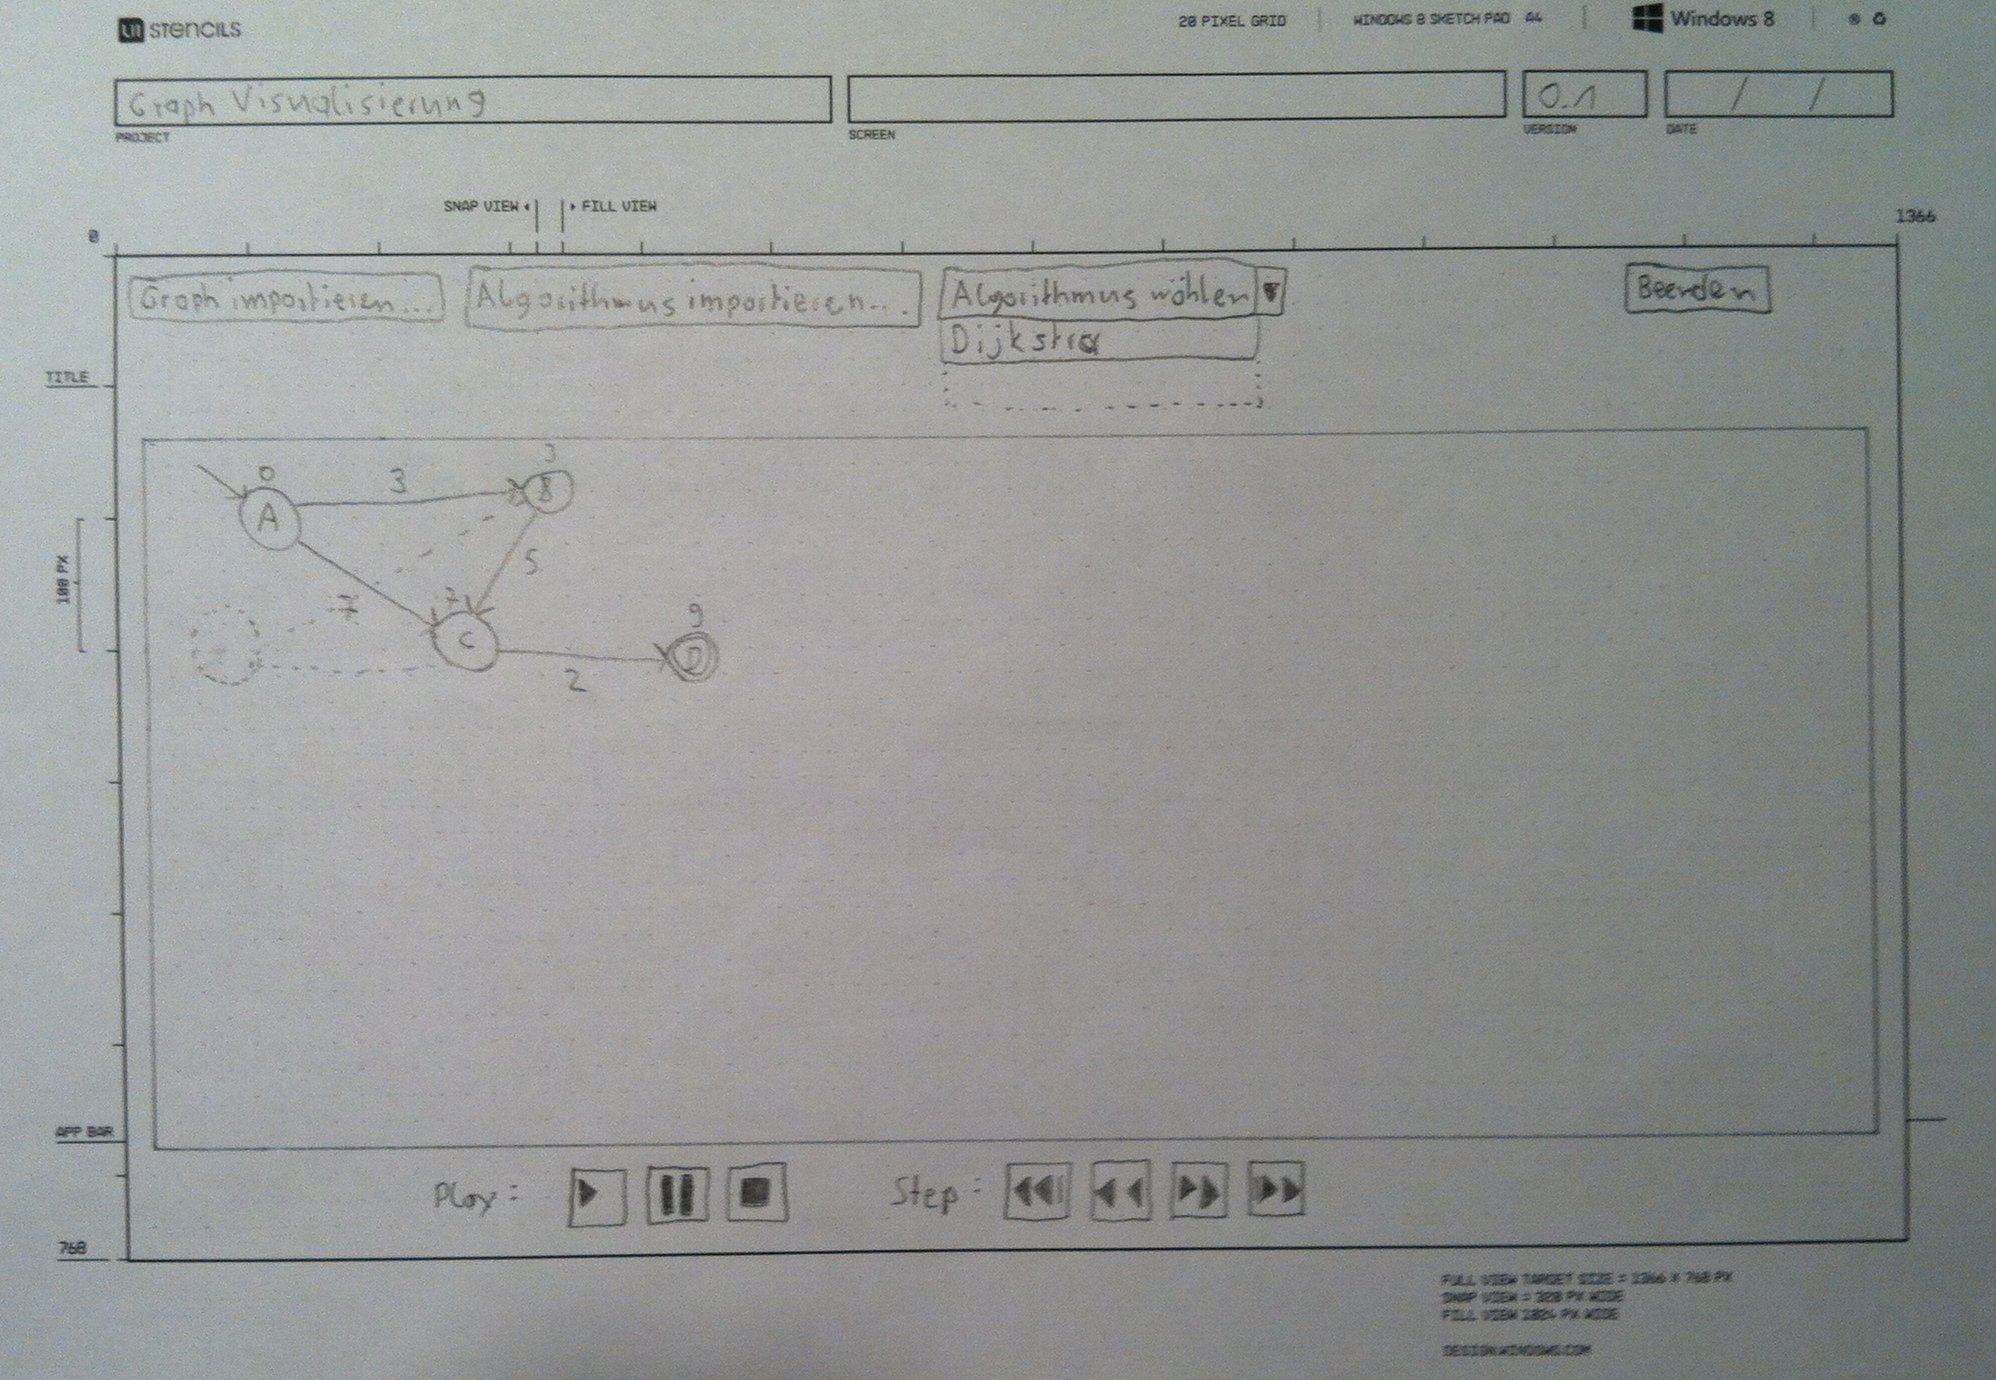 UI STENCILS
20 PIXEL GRID
WINDOWS 8 SKETCH PAD A4
Windows 8
Graph Visualisierung
0.1
/ /
PROJECT
SCREEN
VERSION
DATE
SNAP VIEW
FILL VIEW
0
1366
Graph importieren...
Algorithmus importieren...
Algorithmus wählen
Beenden
Dijkstra
TITLE
0
3
3
A
B
5
100 PX
7
7
C
9
D
2
APP BAR
Play:
Step:
768
FULL VIEW TARGET SIZE = 1366 X 768 PX
SNAP VIEW = 320 PX WIDE
FILL VIEW 1024 PX WIDE
DESIGN.WINDOWS.COM